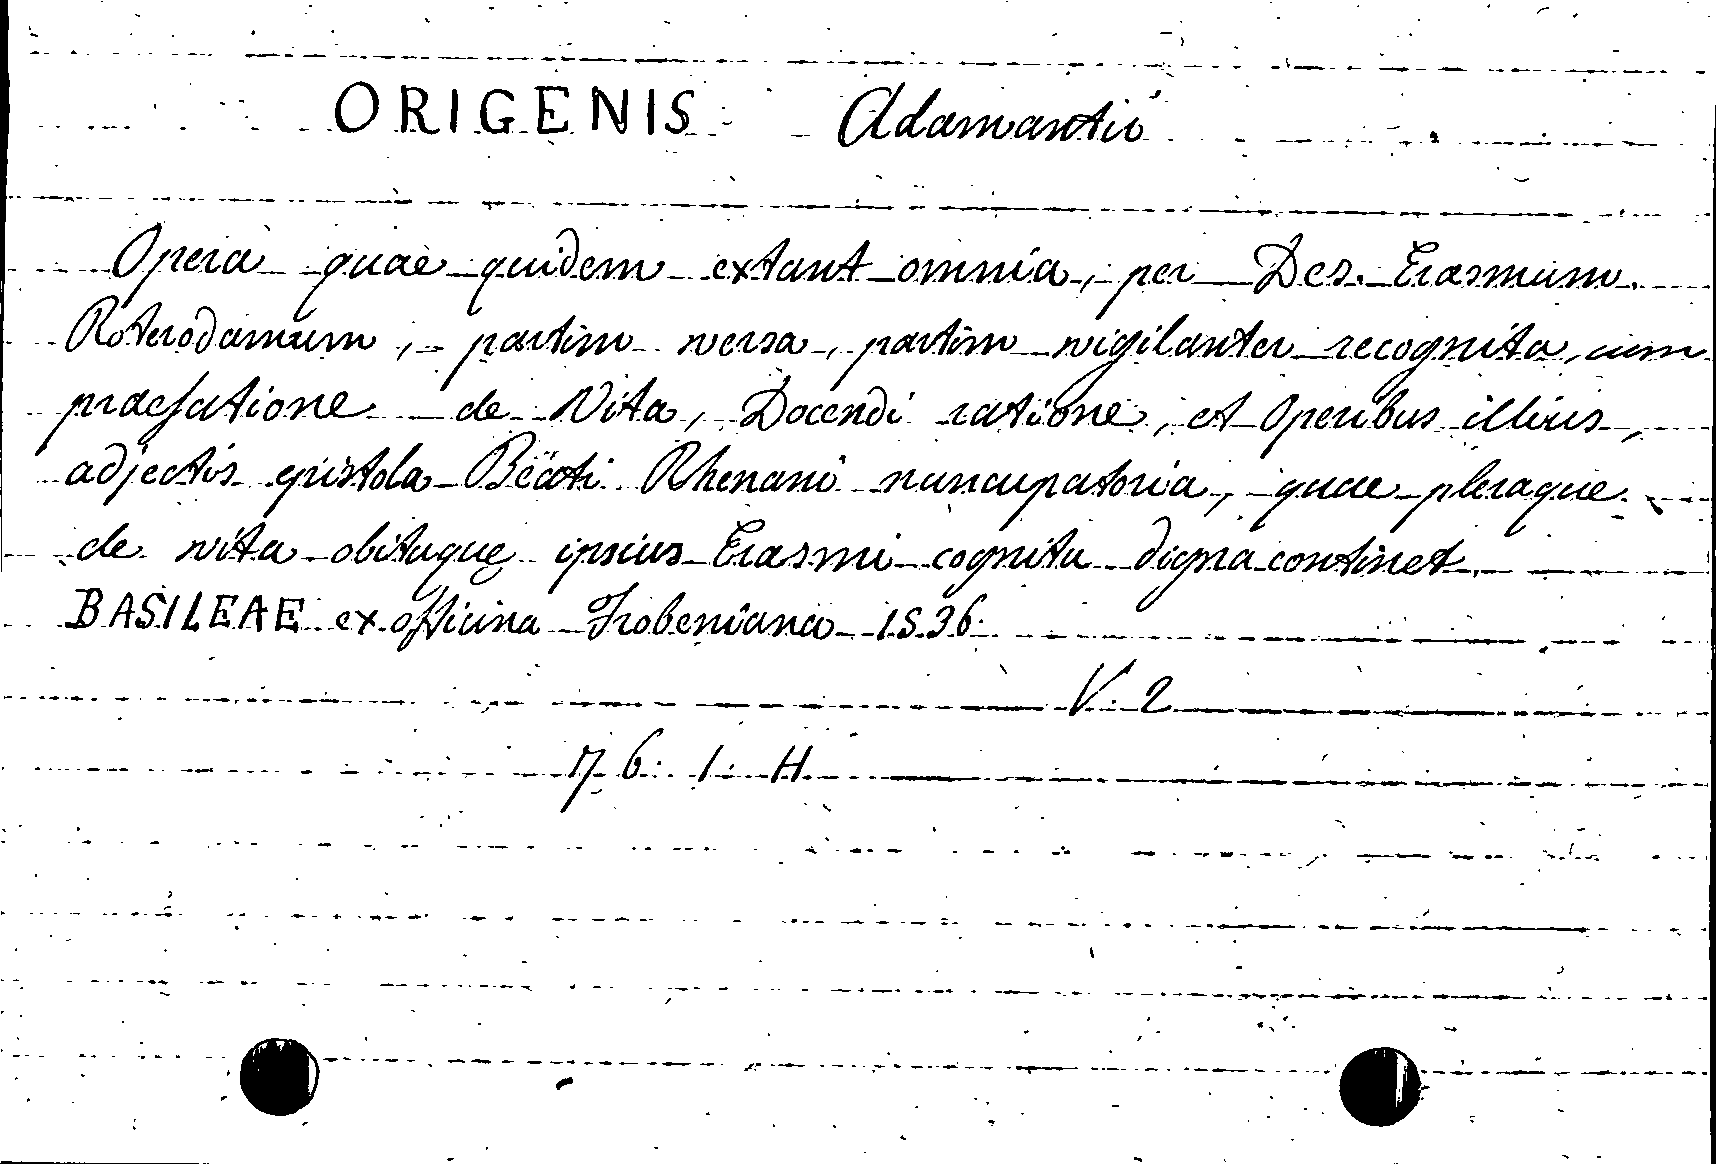 ORIGENIS Adamantii
Opera quae quidem extant omnia, per Des. Erasmum
Roterodamum, partim versa, partim vigilanter recognita, cum
praefatione de Vita, Docendi ratione, et Operibus illius,
adjectis epistola Beati Rhenani nuncupatoria, quae pleraque
de vita obituque ipsius Erasmi cognitu digna continet.
BASILEAE ex officina Frobeniana 1536.
V. 2
76. 1. H